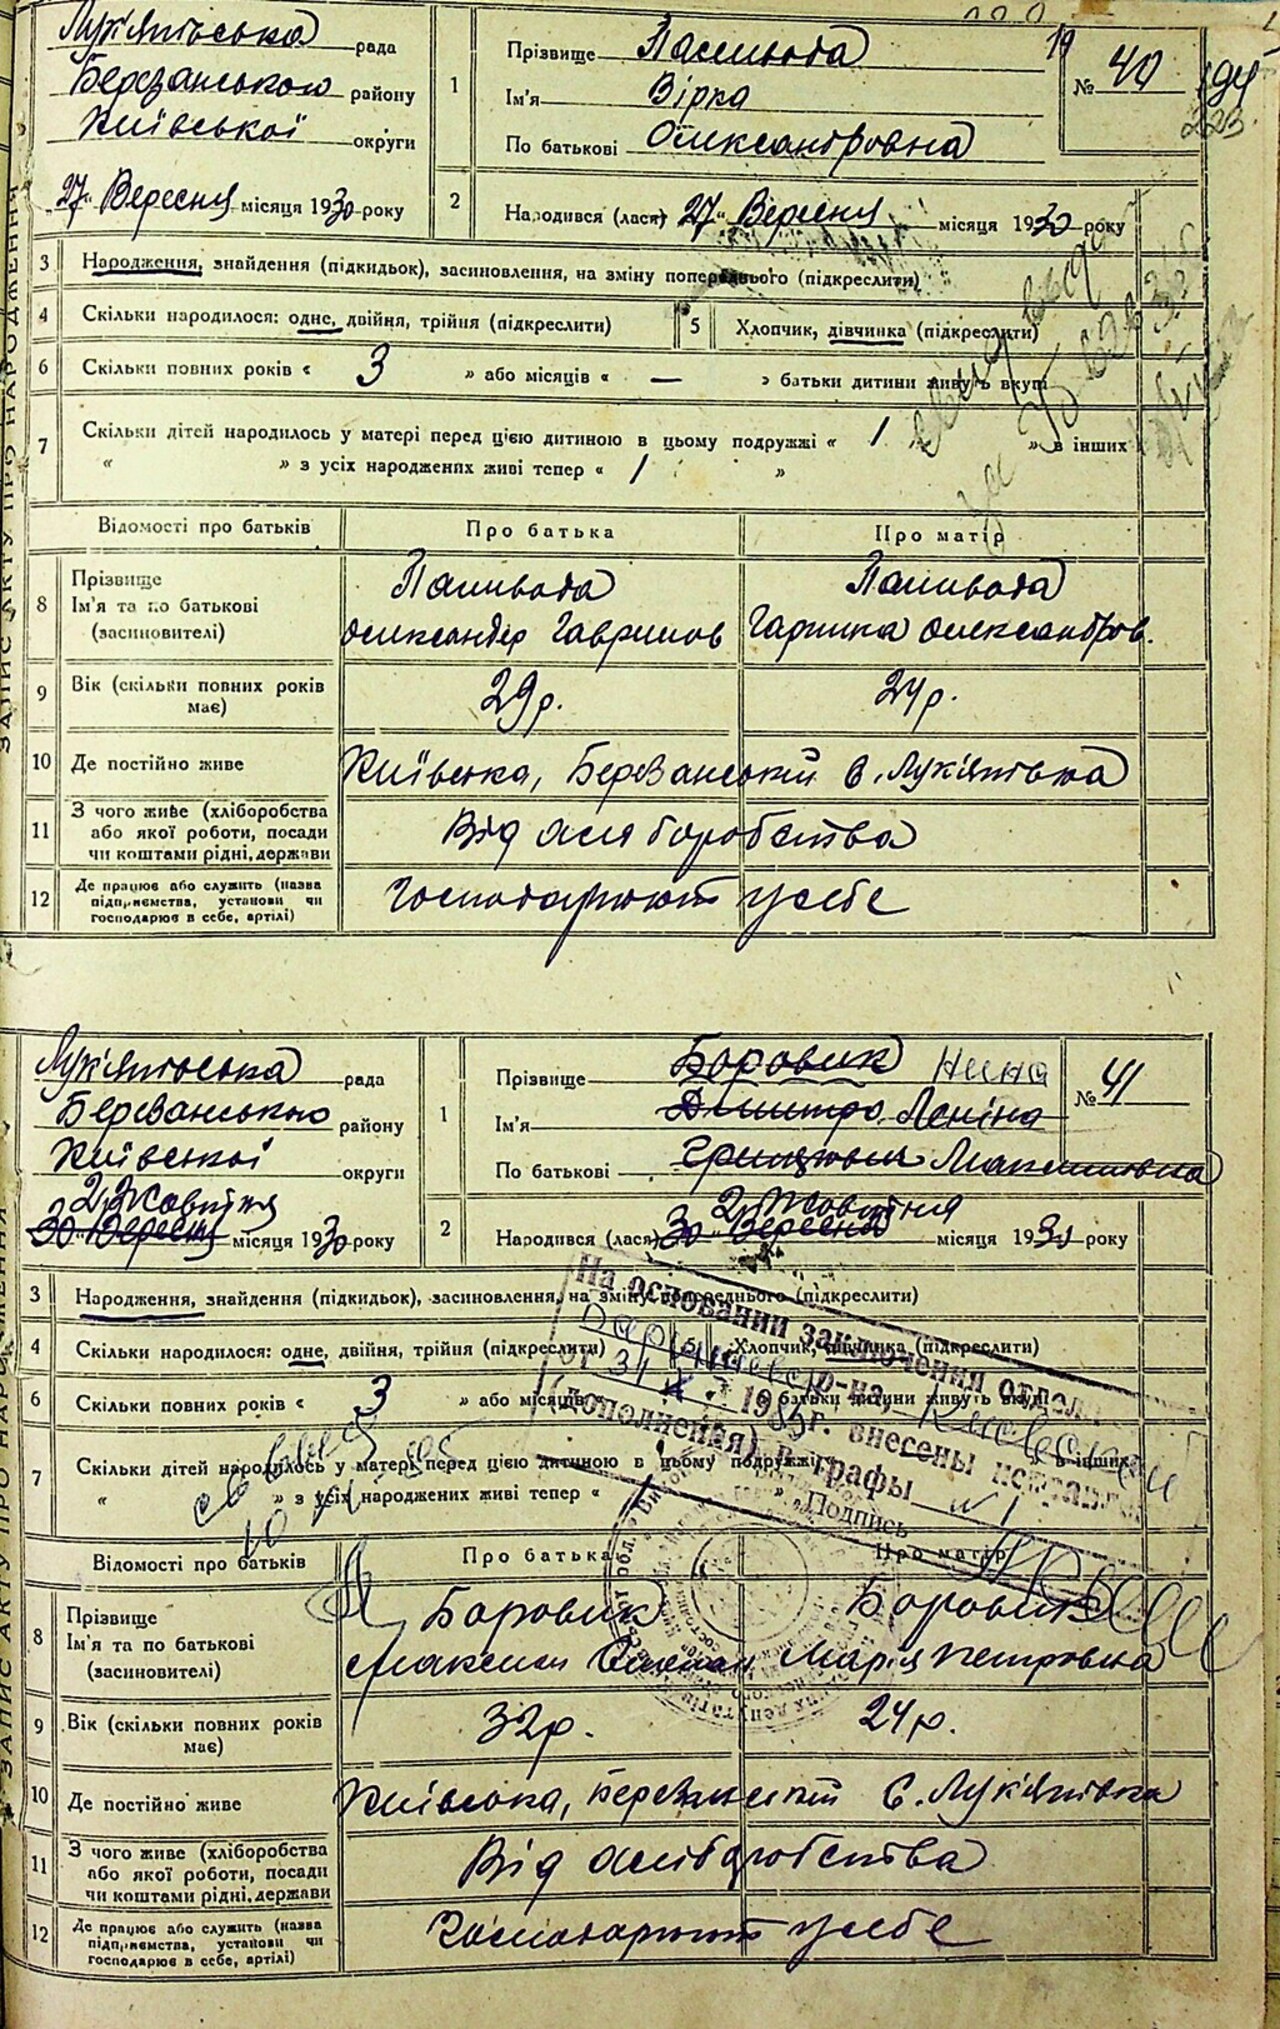 Лук'янівська рада
Березанського району
Київської округи
27 Вересня місяця 1930 року
1
Прізвище Паливода
Ім'я Вірка
По батькові Олександровна
№ 40
194
223
2
Народився (лася) 27 Вересня місяця 1930 року
3 Народження, знайдення (підкидьок), засиновлення, на зміну попереднього (підкреслити)
4 Скільки народилося: одне, двійня, трійня (підкреслити) 5 Хлопчик, дівчинка (підкреслити)
6 Скільки повних років « 3 » або місяців « — » батьки дитини живуть вкупі
7 Скільки дітей народилось у матері перед цією дитиною в цьому подружжі « 1 » в інших
« » з усіх народжених живі тепер « 1 »
Відомості про батьків Про батька Про матір
8 Прізвище
Ім'я та по батькові
(засиновителі)
Паливода
Олександер Гаврилов
Паливода
Галика Олександров.
9 Вік (скільки повних років має) 29р. 24р.
10 Де постійно живе Київська, Березанський с. Лук'янівка
11 З чого живе (хліборобства
або якої роботи, посади
чи коштами рідні, держави
Від хліборобства
12 Де працює або служить (назва
підприємства, установи чи
господарює в себе, артілі)
Господарюют у себе
ЗАПИС АКТУ ПРО НАРОДЖЕННЯ
Лук'янівська рада
Березанського району
Київської округи
2 Жовтня
30 Вересня місяця 1930 року
1
Прізвище Боровик Нина
Ім'я Дмитро Леніна
По батькові Максимовна
№ 41
2
2 Жовтня
Народився (лася) 30 Вересня місяця 1930 року
3 Народження, знайдення (підкидьок), засиновлення, на зміну попереднього (підкреслити)
4 Скільки народилося: одне, двійня, трійня (підкреслити) 5 Хлопчик, дівчинка (підкреслити)
6 Скільки повних років « 3 » або місяців « » батьки дитини живуть вкупі
7 Скільки дітей народилось у матері перед цією дитиною в цьому подружжі в інших
« » з усіх народжених живі тепер « 1 »
На основании заключения отдела
от 31 198 г. внесены исправления
(дополнения) в графы № 1
Подпись
Відомості про батьків Про батька Про матір
8 Прізвище
Ім'я та по батькові
(засиновителі)
Боровик
Максим
Боровик
Марія Петровна
9 Вік (скільки повних років має) 32р. 24р.
10 Де постійно живе Київська, Березанский с. Лук'янівка
11 З чого живе (хліборобства
або якої роботи, посади
чи коштами рідні, держави
Від хліборобства
12 Де працює або служить (назва
підприємства, установи чи
господарює в себе, артілі)
Господарюют у себе
ЗАПИС АКТУ ПРО НАРОДЖЕННЯ